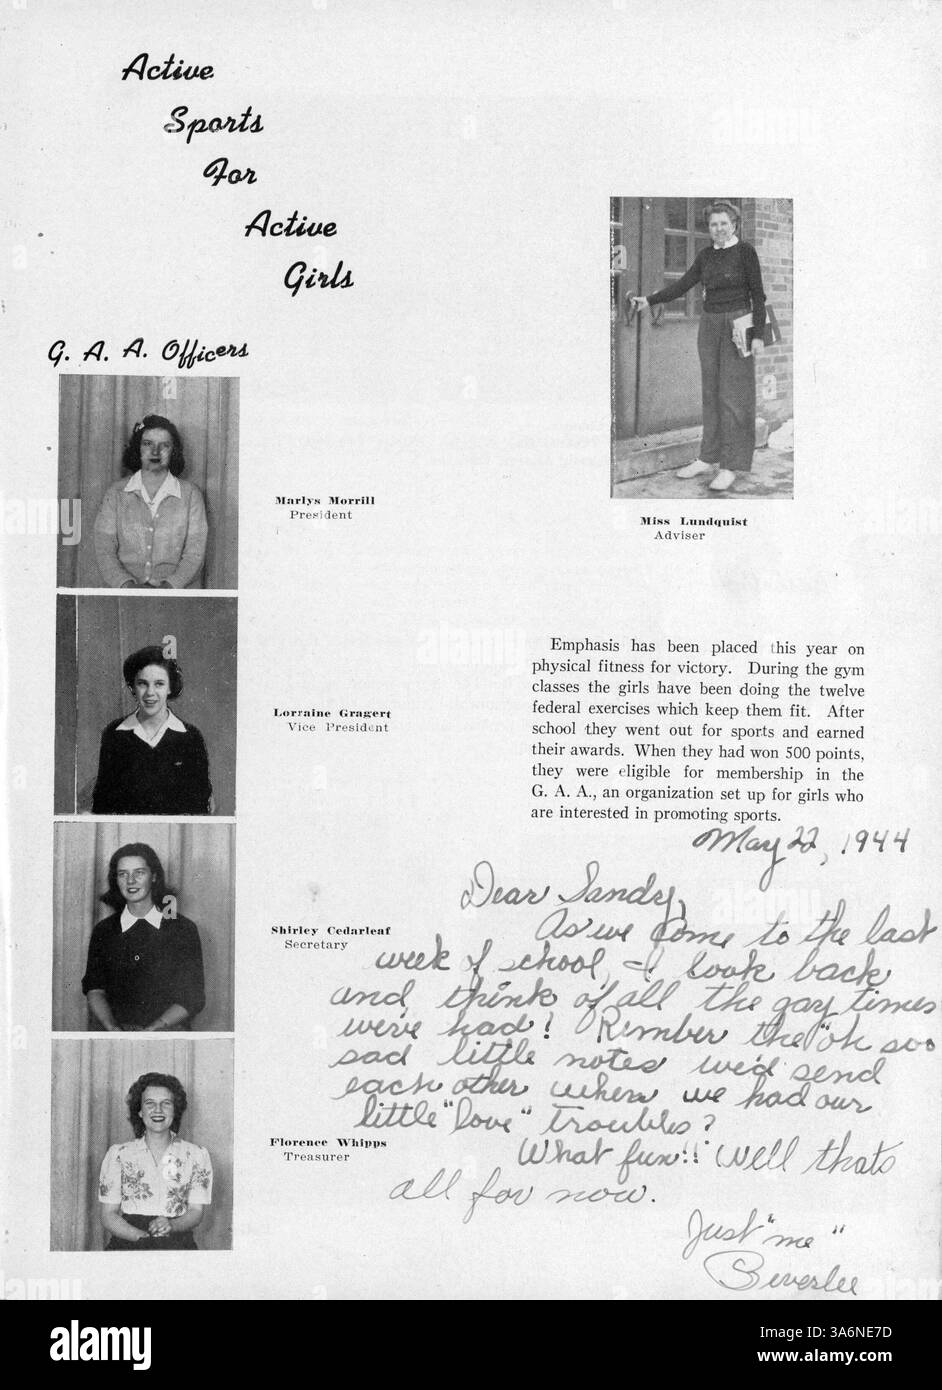 Active
Sports
For
Active
Girls
G. A. A. Officers
Marlys Morrill
President
Miss Lundquist
Adviser
Lorraine Gragert
Vice President
Emphasis has been placed this year on
physical fitness for victory. During the gym
classes the girls have been doing the twelve
federal exercises which keep them fit. After
school they went out for sports and earned
their awards. When they had won 500 points,
they were eligible for membership in the
G. A. A., an organization set up for girls who
are interested in promoting sports.
May 22, 1944
Dear Sandry,
As we come to the last
week of school, I look back
and think of all the gay times
we've had! Rember the "oh soo
sad little notes we'd send
each other when we had our
little "love" troubles?
What fun!! Well thats
all for now.
Just "me"
Beverlee
Shirley Cedarleaf
Secretary
Florence Whipps
Treasurer
alamy
Image ID: 3A6NE7D
www.alamy.com